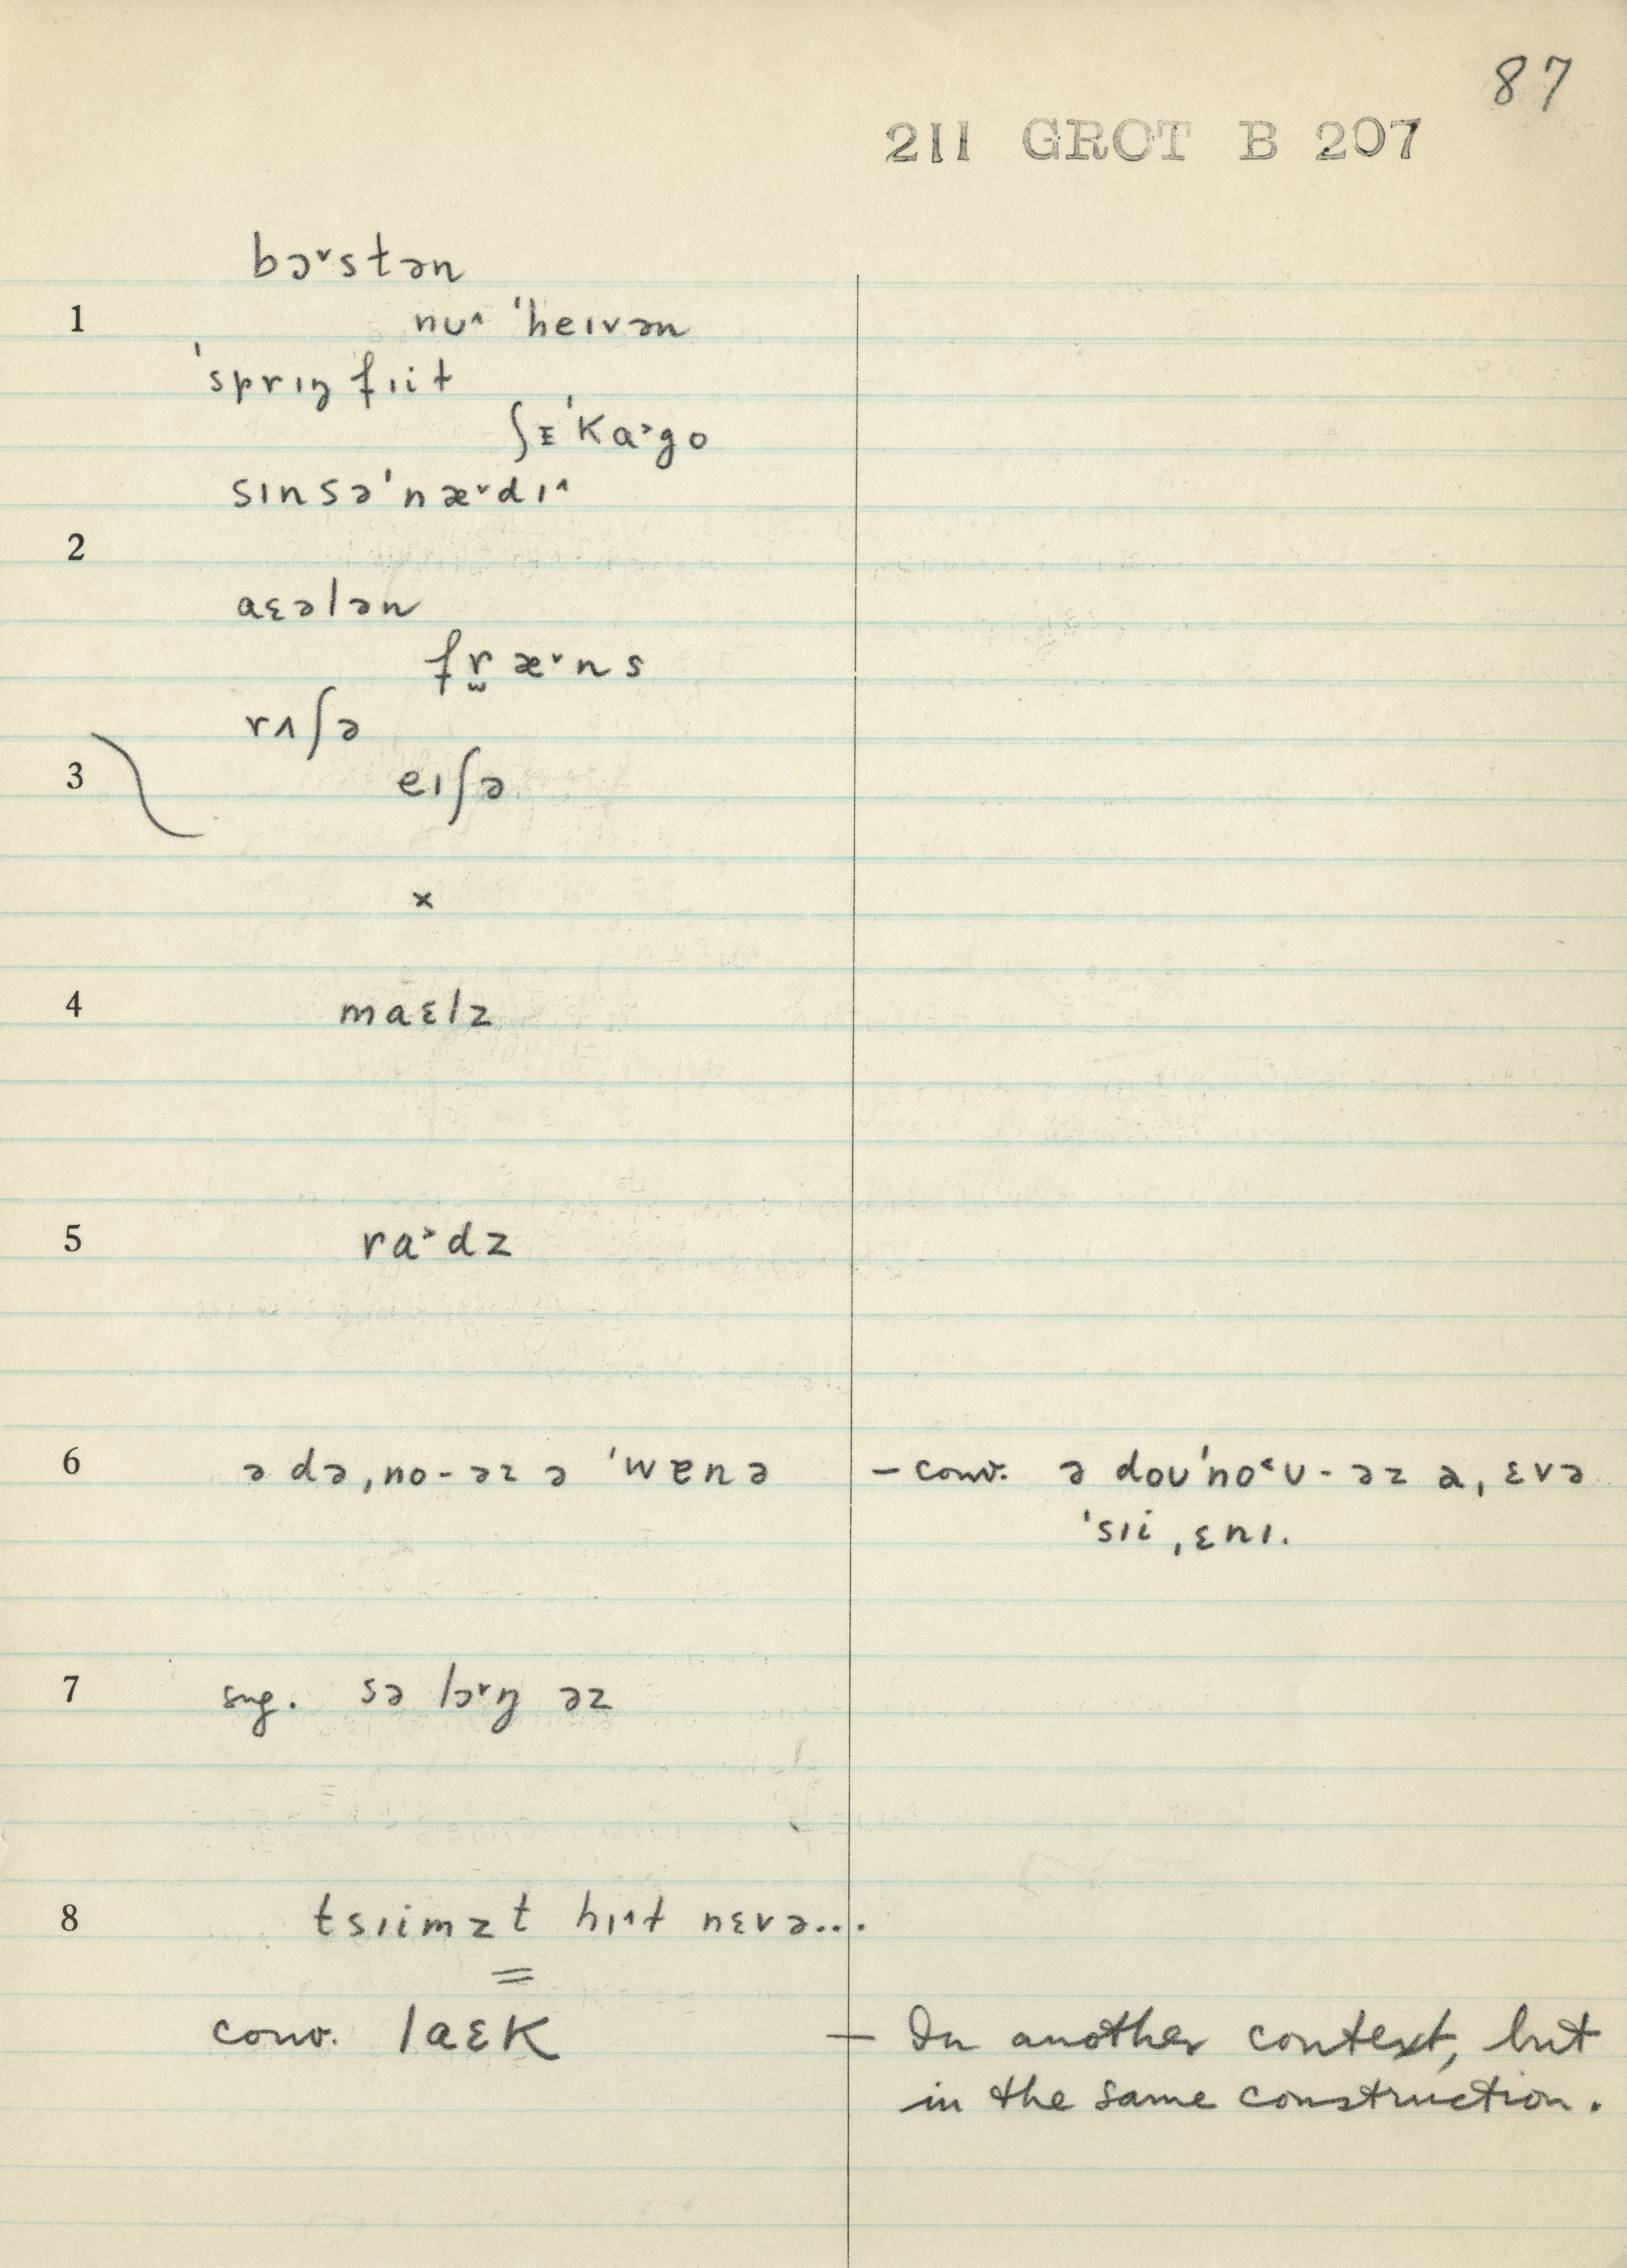 87
211 GROT B 207
bɔ˅stən
1 nu˄ ˈheɪvən
ˈsprɪŋ fɪiɫ
ʃᵻˈka˃go
sɪnsəˈnæ˅dɪ˄
2
aɛələn
fr̬æ˅ns
rʌʃə
3 eɪʃə
×
4 maɛlz
5 ra˃dz
6 ə dəˌno-əz ə ˈwɐnə – conv. ə doʊˈno˂ʊ-əz aˌɛvə
ˈsɪiˌɛnɪ.
7 sug. sə lɔ˅ŋ əz
8 tsɪimzt hɪ˄ɫ nɛvə...
=
conv. laɛk – In another context, but
in the same construction.